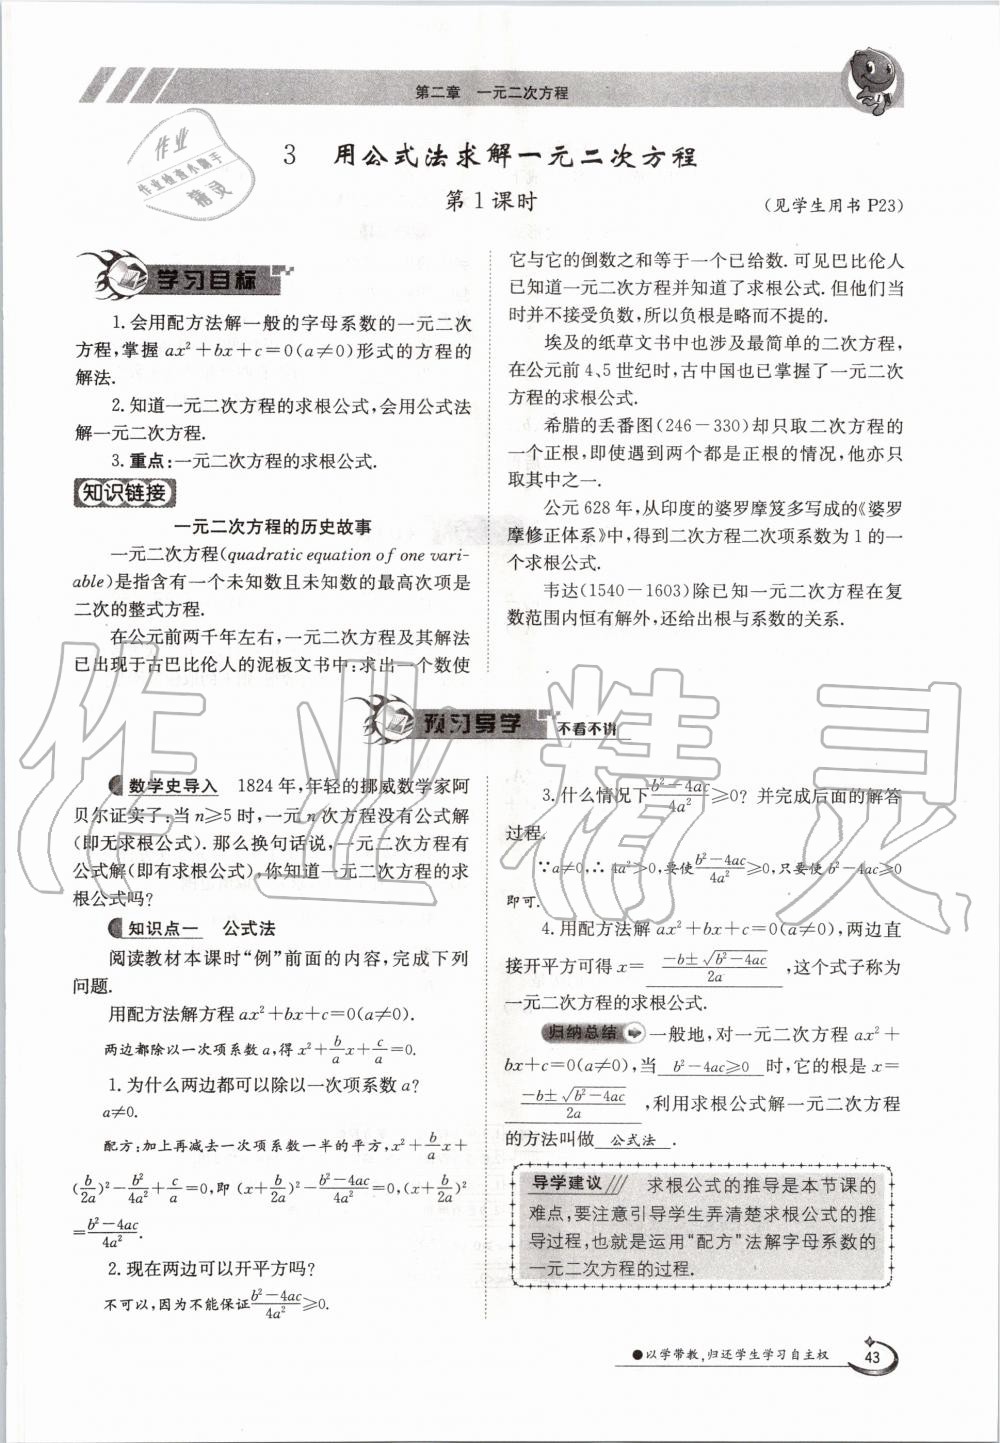 第二章 一元二次方程
3 用公式法求解一元二次方程
第1课时
(见学生用书 P23)
学习目标
1.会用配方法解一般的字母系数的一元二次
方程,掌握 ax²+bx+c=0(a≠0)形式的方程的
解法.
2.知道一元二次方程的求根公式,会用公式法
解一元二次方程.
3.重点:一元二次方程的求根公式.
知识链接
一元二次方程的历史故事
一元二次方程(quadratic equation of one vari-
able)是指含有一个未知数且未知数的最高次项是
二次的整式方程.
在公元前两千年左右,一元二次方程及其解法
已出现于古巴比伦人的泥板文书中:求出一个数使
它与它的倒数之和等于一个已给数.可见巴比伦人
已知道一元二次方程并知道了求根公式.但他们当
时并不接受负数,所以负根是略而不提的.
埃及的纸草文书中也涉及最简单的二次方程,
在公元前4、5世纪时,古中国也已掌握了一元二次
方程的求根公式.
希腊的丢番图(246-330)却只取二次方程的
一个正根,即使遇到两个都是正根的情况,他亦只
取其中之一.
公元628年,从印度的婆罗摩笈多写成的《婆罗
摩修正体系》中,得到二次方程二次项系数为1的一
个求根公式.
韦达(1540-1603)除已知一元二次方程在复
数范围内恒有解外,还给出根与系数的关系.
预习导学 不看不讲
数学史导入 1824年,年轻的挪威数学家阿
贝尔证实了:当n≥5时,一元n次方程没有公式解
(即无求根公式).那么换句话说,一元二次方程有
公式解(即有求根公式),你知道一元二次方程的求
根公式吗?
知识点一 公式法
阅读教材本课时“例”前面的内容,完成下列
问题.
用配方法解方程 ax²+bx+c=0(a≠0).
两边都除以一次项系数a,得 x²+b/a x+c/a=0.
1.为什么两边都可以除以一次项系数a?
a≠0.
配方:加上再减去一次项系数一半的平方,x²+b/a x+
(b/2a)²-b²/4a²+c/a=0,即 (x+b/2a)²-(b²-4ac)/4a²=0,(x+b/2a)²
=(b²-4ac)/4a².
2.现在两边可以开平方吗?
不可以,因为不能保证(b²-4ac)/4a²≥0.
3.什么情况下(b²-4ac)/4a²≥0?并完成后面的解答
过程.
∵a≠0,∴4a²>0,要使(b²-4ac)/4a²≥0,只要使 b²-4ac≥0
即可.
4.用配方法解 ax²+bx+c=0(a≠0),两边直
接开平方可得 x= (-b±√(b²-4ac))/2a ,这个式子称为
一元二次方程的求根公式.
归纳总结 一般地,对一元二次方程 ax²+
bx+c=0(a≠0),当 b²-4ac≥0 时,它的根是 x=
(-b±√(b²-4ac))/2a ,利用求根公式解一元二次方程
的方法叫做 公式法 .
导学建议 求根公式的推导是本节课的
难点,要注意引导学生弄清楚求根公式的推
导过程,也就是运用“配方”法解字母系数的
一元二次方程的过程.
●以学带教,归还学生学习自主权
43
作业
作业检查小助手
精灵
作业精灵